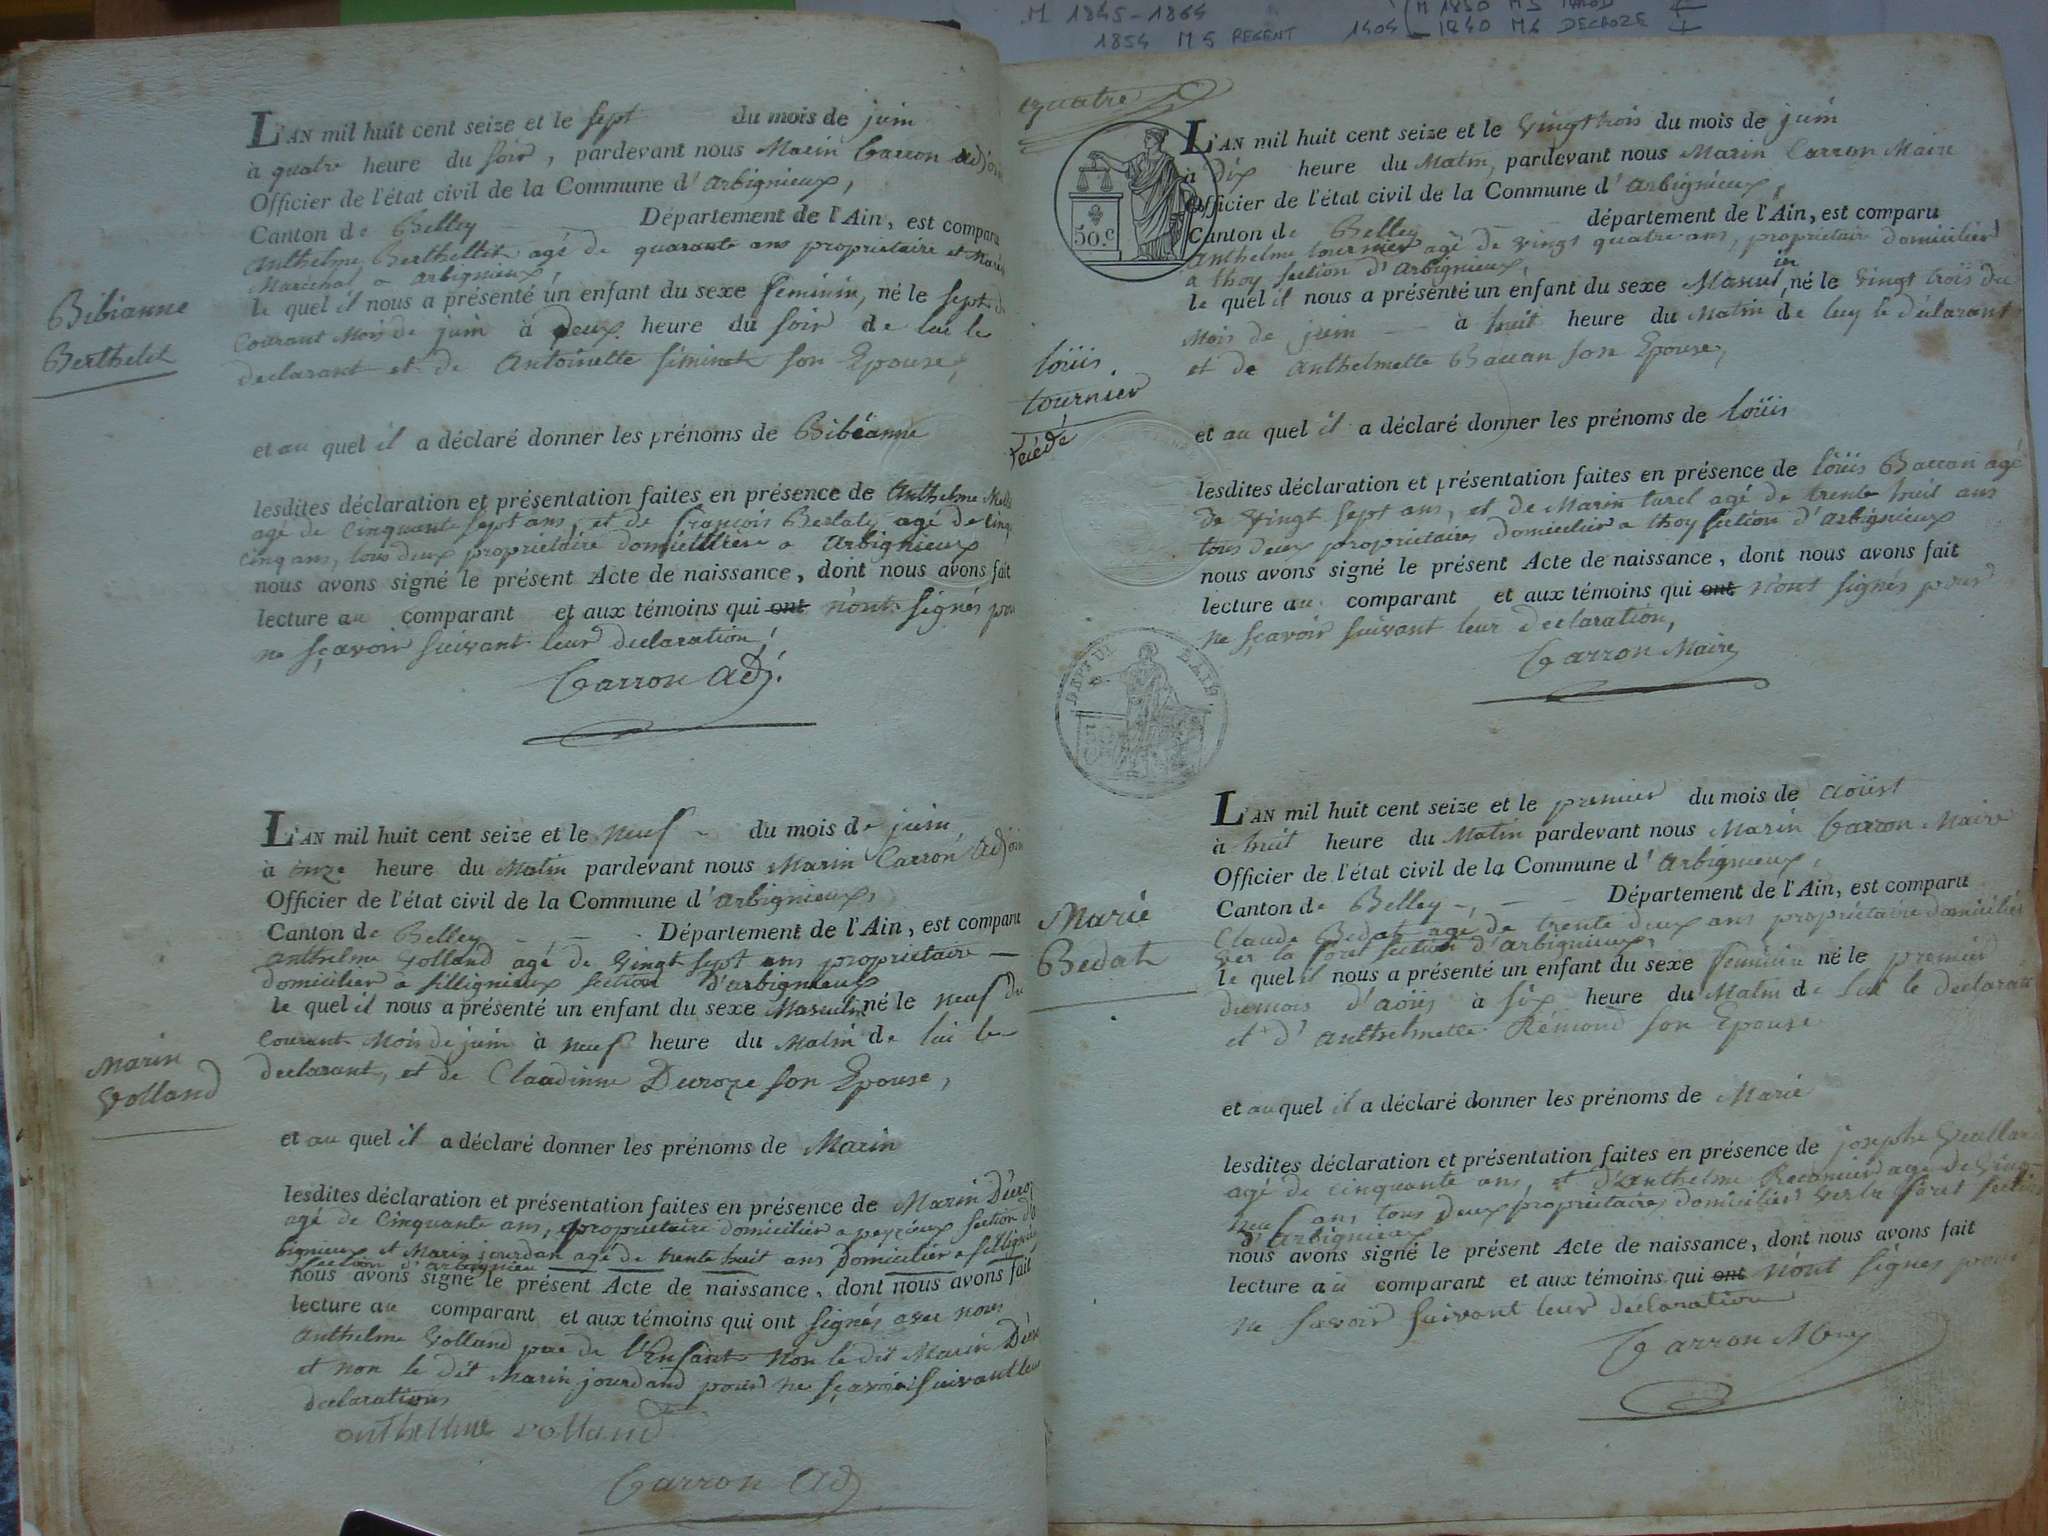 M 1845-1864
1854 M5 REGENT
1840 M6 DECROZE
Bibéanne
Berthelet
L'AN mil huit cent seize et le sept du mois de juin
à quatre heure du soir, pardevant nous Marin Carron adjoin
Officier de l'état civil de la Commune d'arbignieux,
Canton de Belley Département de l'Ain, est comparu
Anthelme Berthellet agé de quarante ans proprietaire et
Maréchal a arbignieux,
le quel il nous a présenté un enfant du sexe feminin, né le sept du
courant mois de juin à deux heure du soir de lui le
declarant et de Antoinette siminet son Epouse,
et au quel il a déclaré donner les prénoms de Bibéanne
lesdites déclaration et présentation faites en présence de Anthelme
agé de cinquante sept ans, et de françois agé de cinq
cinq ans, tous deux proprietaire a arbignieux
nous avons signé le présent Acte de naissance, dont nous avons fait
lecture au comparant et aux témoins qui ont n'ont signés pou
ne sçavoir suivant leur declaration,
Carron adj.
marin
Volland
L'AN mil huit cent seize et le neuf du mois de juin
à onze heure du Matin pardevant nous Marin Carron adjoin
Officier de l'état civil de la Commune d'arbignieux,
Canton de Belley Département de l'Ain, est comparu
anthelme Volland agé de vingt sept ans proprietaire
domicilier a sillignieux section d'arbignieux
le quel il nous a présenté un enfant du sexe Masculin né le neuf du
courant Mois de juin à neuf heure du Matin de lui le
declarant, et de Claudinne Duroze son Epouse,
et au quel il a déclaré donner les prénoms de Marin
lesdites déclaration et présentation faites en présence de Marin
agé de cinquante ans, proprietaire domicilier a peyzieux section d'ar
bignieux et Marin jourdan agé de trente huit ans domicilier a
section d'arbignieu
nous avons signé le présent Acte de naissance, dont nous avons fait
lecture au comparant et aux témoins qui ont signés avec nous
anthelme Volland pere de l'Enfant non le dit Marin
et non le dit Marin jourdand pour ne sçavoir suivant leur
declarations
anthelme volland
Carron adj
quatre
50.c
louis
tournier
décédé
L'AN mil huit cent seize et le vingt trois du mois de juin
à dix heure du Matin, pardevant nous Marin Carron Maire
Officier de l'état civil de la Commune d'arbignieux,
Canton de Belley département de l'Ain, est comparu
anthelme tournier agé de vingt quatre ans, proprietair domicilier
a thoy section d'arbignieux,
le quel il nous a présenté un enfant du sexe né le vingt trois du
mois de juin à huit heure du Matin de luy le déclarant
et de anthelmette Baccan son Epouse,
et au quel il a déclaré donner les prénoms de loüis
lesdites déclaration et présentation faites en présence de loüis Baccan agé
de vingt sept ans, et de Marin turel agé de trente huit ans
tous deux proprietaires domicilier a thoy section d'arbignieux
nous avons signé le présent Acte de naissance, dont nous avons fait
lecture au comparant et aux témoins qui ont n'ont signés pour
ne sçavoir suivant leur declaration,
Carron Maire
DEPT DE L'AIN
Marie
Bedat
L'AN mil huit cent seize et le premier du mois de aoüst
à huit heure du Matin pardevant nous Marin Carron Maire
Officier de l'état civil de la Commune d'arbignieux,
Canton de Belley Département de l'Ain, est comparu
Claude Bedat agé de trente deux ans propriétaire domicilier
ver la foret section d'arbignieux,
le quel il nous a présenté un enfant du sexe feminine né le premier
du mois d'aoüs à six heure du Matin de lui le declarant
et d'anthelmette Rémond son Epouse
et au quel il a déclaré donner les prénoms de Marie
lesdites déclaration et présentation faites en présence de josephe
agé de cinquante ans, et d'anthelme Recamier agé de vingt
neuf ans tous deux proprietaires domicilier ver la foret section
d'arbignieux
nous avons signé le présent Acte de naissance, dont nous avons fait
lecture au comparant et aux témoins qui ont n'ont signes pour
ne savoir suivant leur declaration
Carron